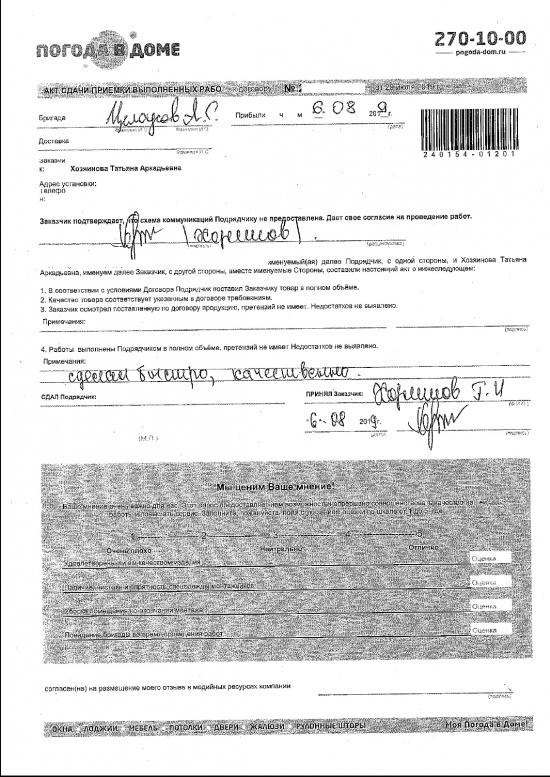 ПОГОДА В ДОМЕ
270-10-00
pogoda-dom.ru
АКТ СДАЧИ-ПРИЕМКИ ВЫПОЛНЕННЫХ РАБОТ к договору № от 29 июля 2019 г.
Бригада
Прибыли ч м 6.08 2019 г.
(дата)
Доставка
240154-01201
Заказчи
к: Хозяинова Татьяна Аркадьевна
Адрес установки:
Телефо
н:
Заказчик подтверждает, что схема коммуникаций Подрядчику не предоставлена. Дает свое согласие на проведение работ.
именуемый(ая) далее Подрядчик, с одной стороны, и Хозяинова Татьяна
Аркадьевна, именуем далее Заказчик, с другой стороны, вместе именуемые Стороны, составили настоящий акт о нижеследующем:
1. В соответствии с условиями Договора Подрядчик поставил Заказчику товар в полном объёме.
2. Качество товара соответствует указанным в договоре требованиям.
3. Заказчик осмотрел поставленную по договору продукцию, претензий не имеет. Недостатков не выявлено.
Примечания:
(подпись)
4. Работы выполнены Подрядчиком в полном объёме, претензий не имеет Недостатков не выявлено.
Примечания:
сделали быстро, качественно.
СДАЛ Подрядчик:
ПРИНЯЛ Заказчик:
6-08 2019г.
(подпись)
(М.П.)
Мы ценим Ваше мнение!
1 2 3 4 5
Очень плохо Нейтрально Отлично
Удовлетворены ли вы качеством изделия Оценка
Оценка
Уборка помещения по окончании монтажа Оценка
Поведение бригады во время проведения работ Оценка
согласен(на) на размещение моего отзыва в медийных ресурсах компании
(подпись)
ОКНА ЛОДЖИИ МЕБЕЛЬ ПОТОЛКИ ДВЕРИ ЖАЛЮЗИ РУЛОННЫЕ ШТОРЫ Моя Погода в Доме!